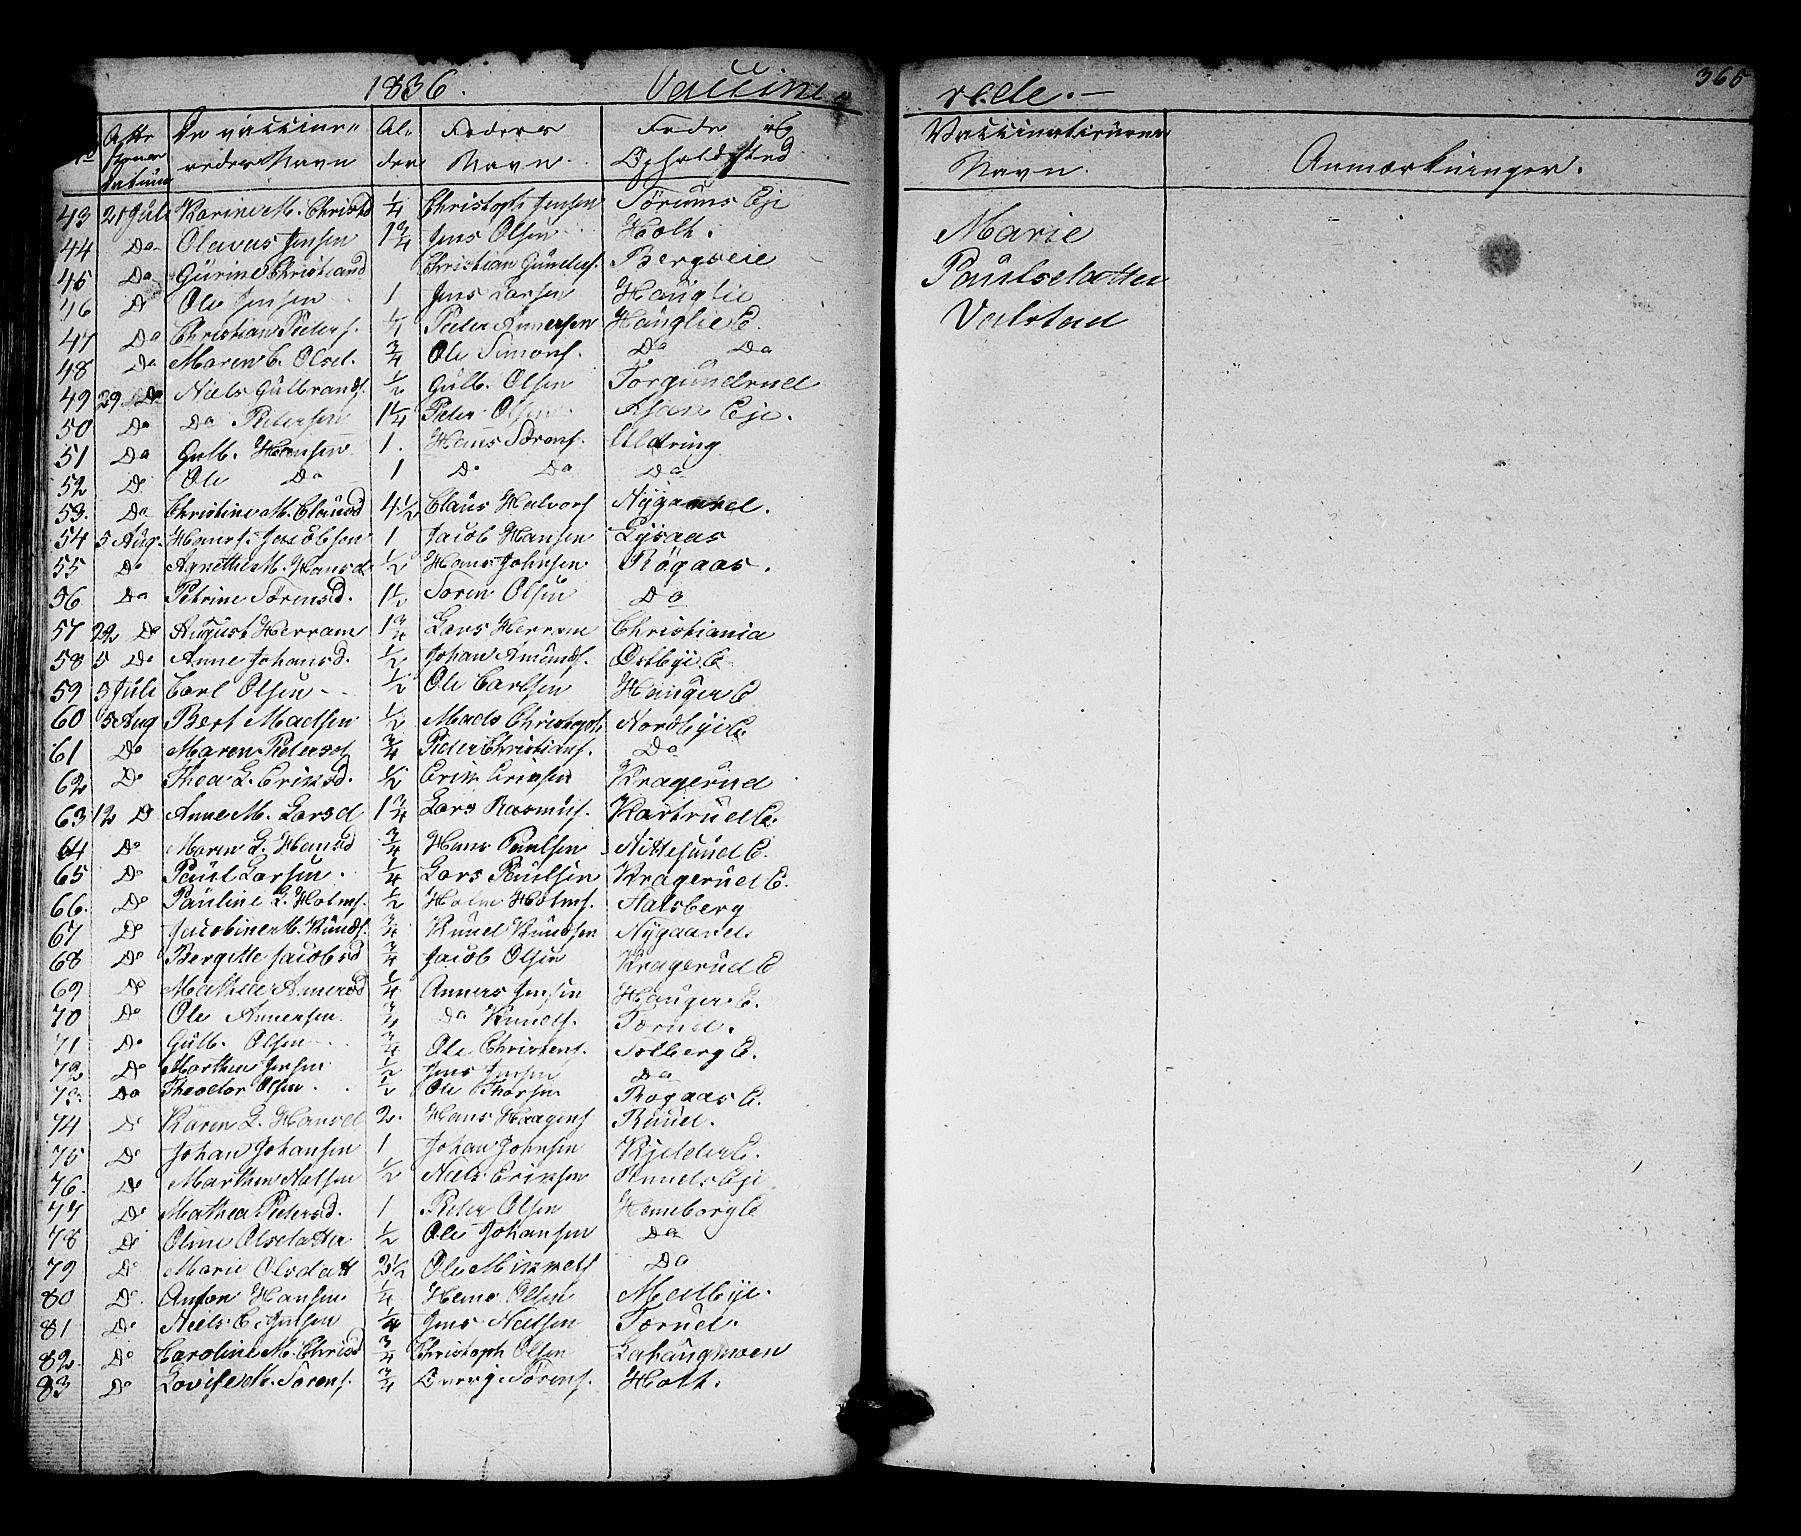 1836. Vaccine
rede. — 365
No Atte sternes Datum De vaccine= redes Navn Al= der Faders Navn. Føde og Opholdssted Vaccinatricens Navn. Anmærkninger.
43 21 Juli Karine M. Christd 1/4 Christoph Jensen Tørums Eje Marie
44 Do Olavus Jensen 1 3/4 Jens Olsen Holt. Paulsdatter
45 Do Gurine Christiansd Christian Gunders. Bergseie Valstad
46 Do Ole Jensen 1 Jens Larsen Hauglie
47 Do Christian Peders. 1/4 Peder Annersen Hauglie E.
48 Do Maren C. Olsd. 3/4 Ole Simons. Do Do
49 29 Do Niels Gulbrands. 1/2 Gulb. Olsen Torgundrud
50 Do Do Petersen 1 1/4 Peder Olsen Asan Eje.
51 Do Gulb. Hansen 1. Hans Sørens. Uldring
52 Do Ole Do 1 Do Do Do
53. Do Christine M. Clausd 4 1/2 Claus Halvors Nygaard.
54 5 Aug. Hans Jacobsen 1 Jacob Hansen Lysaas
55 Do Agnethe M. Hansd. 1/2 Hans Johnsen Røgaas.
56 Do Petrine Sørensd. 1 1/2 Søren Olsen Do
57 22 Do August Herram 1 3/4 Lars Herram Christiania
58 5 Do Anne Johansd. 1/2 Johan Amunds. Østbye E
59 5 Juli Carl Olsen 1/2 Ole Carlsen Hauger E
60 5 Aug Bert Madsen 1/2 Mads Christoph Nordbye E.
61 Do Maren Peders 3/4 Peder Christians. Do
62 Do Thea L. Eriksd. 1/2 Erik Eriksen Kragerud
63 12 Do Anne M. Larsd 1 3/4 Lars Rasmus. Kartrud E.
64 Do Maren L. Hansd 3/4 Hans Paulsen Nittesund E.
65 Do Paul Larsen. 1/4 Lars Paulsen Kragerud E.
66. Do Pauline L. Holms. 1/2 Holm Holms. Aalsberg
67 Do Jacobine M. Knuds. 3/4 Knud Knudsen Nygaard
68 Do Bergitte Jacobsd 3/4 Jacob Olsen Kragerud E
69 Do Mathea Annersd 1/4 Anners Jensen Hauger E.
70 Do Ole Annersen 3/4 Do Knuds. Tærud.
71 Do Gulb. Olsen 3/4 Ole Christens. Solberg E.
72 Do Marthin Jensen 1/2 Jens Jensen Do
73. Do Theodor Olsen. 1/2 Ole Thorsen Rogaas E.
74 Do Karen L. Hansd 2. Hans Haagens Ruud.
75 Do Johan Johansen 1 Johan Johnsen Kjelder E.
76. Do Marthin Nielsen 1/2 Niels Eriksen Ruuds Eje
77 Do Mathea Pedersd. 1 Peder Olsen Hemeborg E
78 Do Oline Olsdatter 1/2 Ole Johansen Do
79 Do Marie Olsdatt 2 1/2 Ole Do
80 Do. Anton Hansen 1/4 Hans Olsen Melbye.
81 Do Niels C. Jensen 1/4 Jens Nielsen Tærud.
82. Do Caroline M. Christd 3/4 Christoph Olsen Lahaugmoen
83 Do Lovise M. Sørens. 3/4 Sørens. Holt.